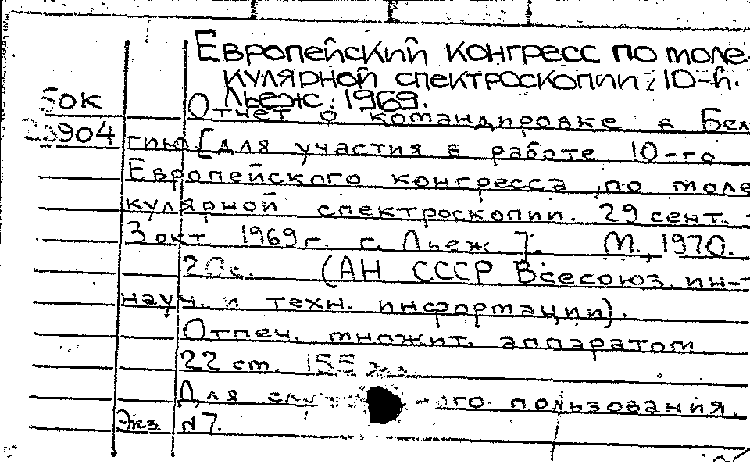 Европейский конгресс по моле-
кулярной спектроскопии, 10-й.
Льеж. 1969.
Отчет о командировке в Бель
гию [для участия в работе 10-го
Европейского конгресса по моле
кулярной спектроскопии. 29 сент. -
3 окт 1969 г. г. Льеж]. М., 1970.
20 с. (АН СССР Всесоюз. ин-т
науч. и техн. информации).
Отпеч. множит. аппаратом
22 ст. 155 экз
Для пользования.
Экз N7.
БОК
904